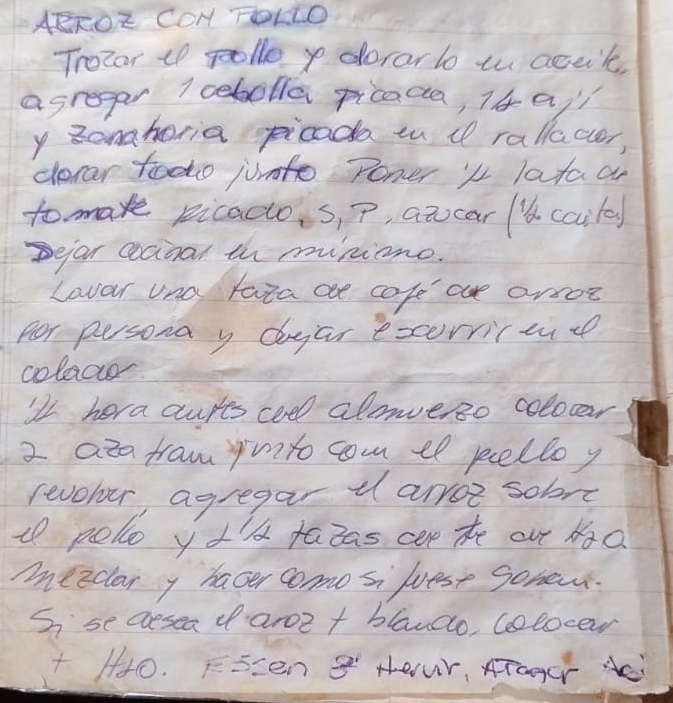 ARROZ CON POLLO
Trozar el pollo y dorarlo en aceite,
agregar 1 cebolla picada, 1/2 ají
y zanahoria picada en el rallador,
dorar todo junto Poner 1/2 lata de
tomate picado, S, P, azucar (1/2 cdita)
Dejar cocinar en mínimo.
Lavar una taza de café de arroz
por persona y dejar escurrir en el
colador
1/2 hora antes del almuerzo colocar
2 azafran junto con el pollo y
revolver, agregar el arroz sobre
el pollo y 2 1/2 tazas de te de H2O
mezclar y hacer como si fuese Gohan.
Si se desea el aroz + blando, colocar
+ H2O. ESSEN Hervir, APAGAR